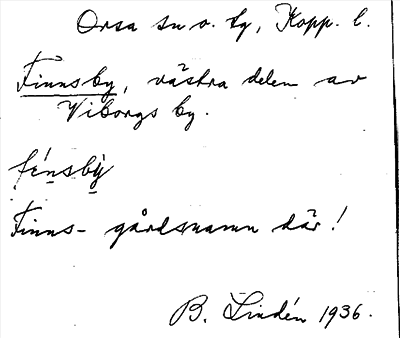 Orsa sn o. tg, Kopp. l.
Finnsby, västra delen av
Viborgs by.
fénsbỳ
Finns- gårdsnamn där!
B. Lindén 1936.